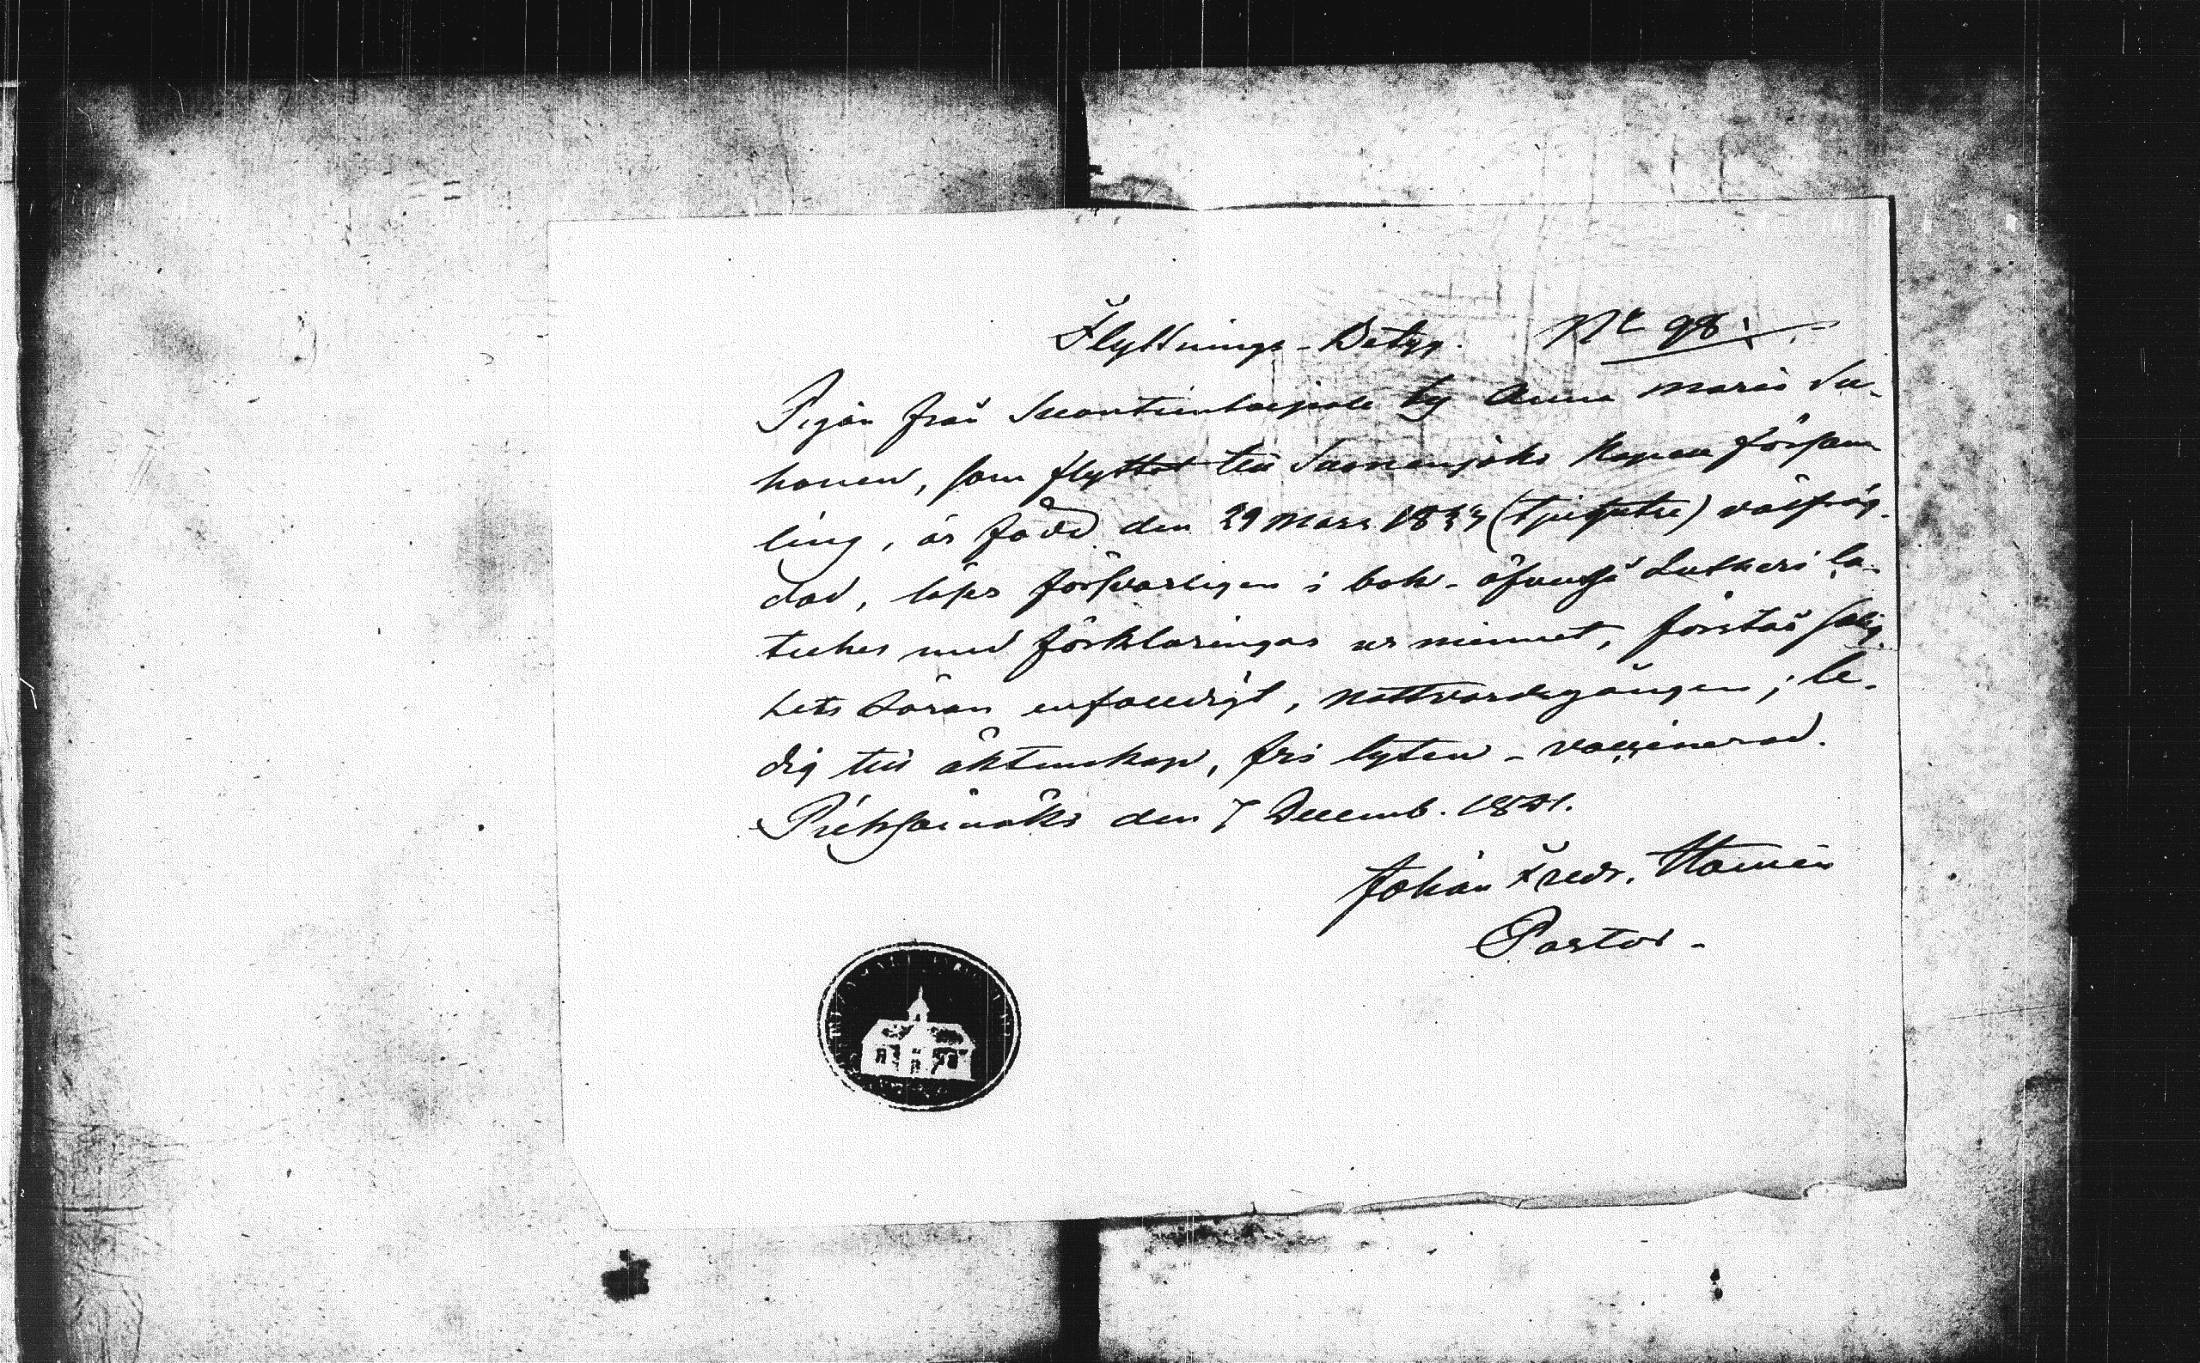 Flyttnings-Betyg. No 98.
Pigan från by Anna Maria Su-
honen, som flyttat till Suonenjoki Kapell försam
ling, är född den 29 Mars 1823 (tjugutre) välfräg-
dad, läser försvarligen i bok - äfvenså Lutheri Ca-
teches med förklaringar ur minnet, förstår salig-
hets Läran enfaldigt, nattvardsgången, le-
dig till äktenskap, fri lyten - vaccinerad.
Pieksämäki den 7 Decemb. 1841.
Johan Fredr.
Pastor -